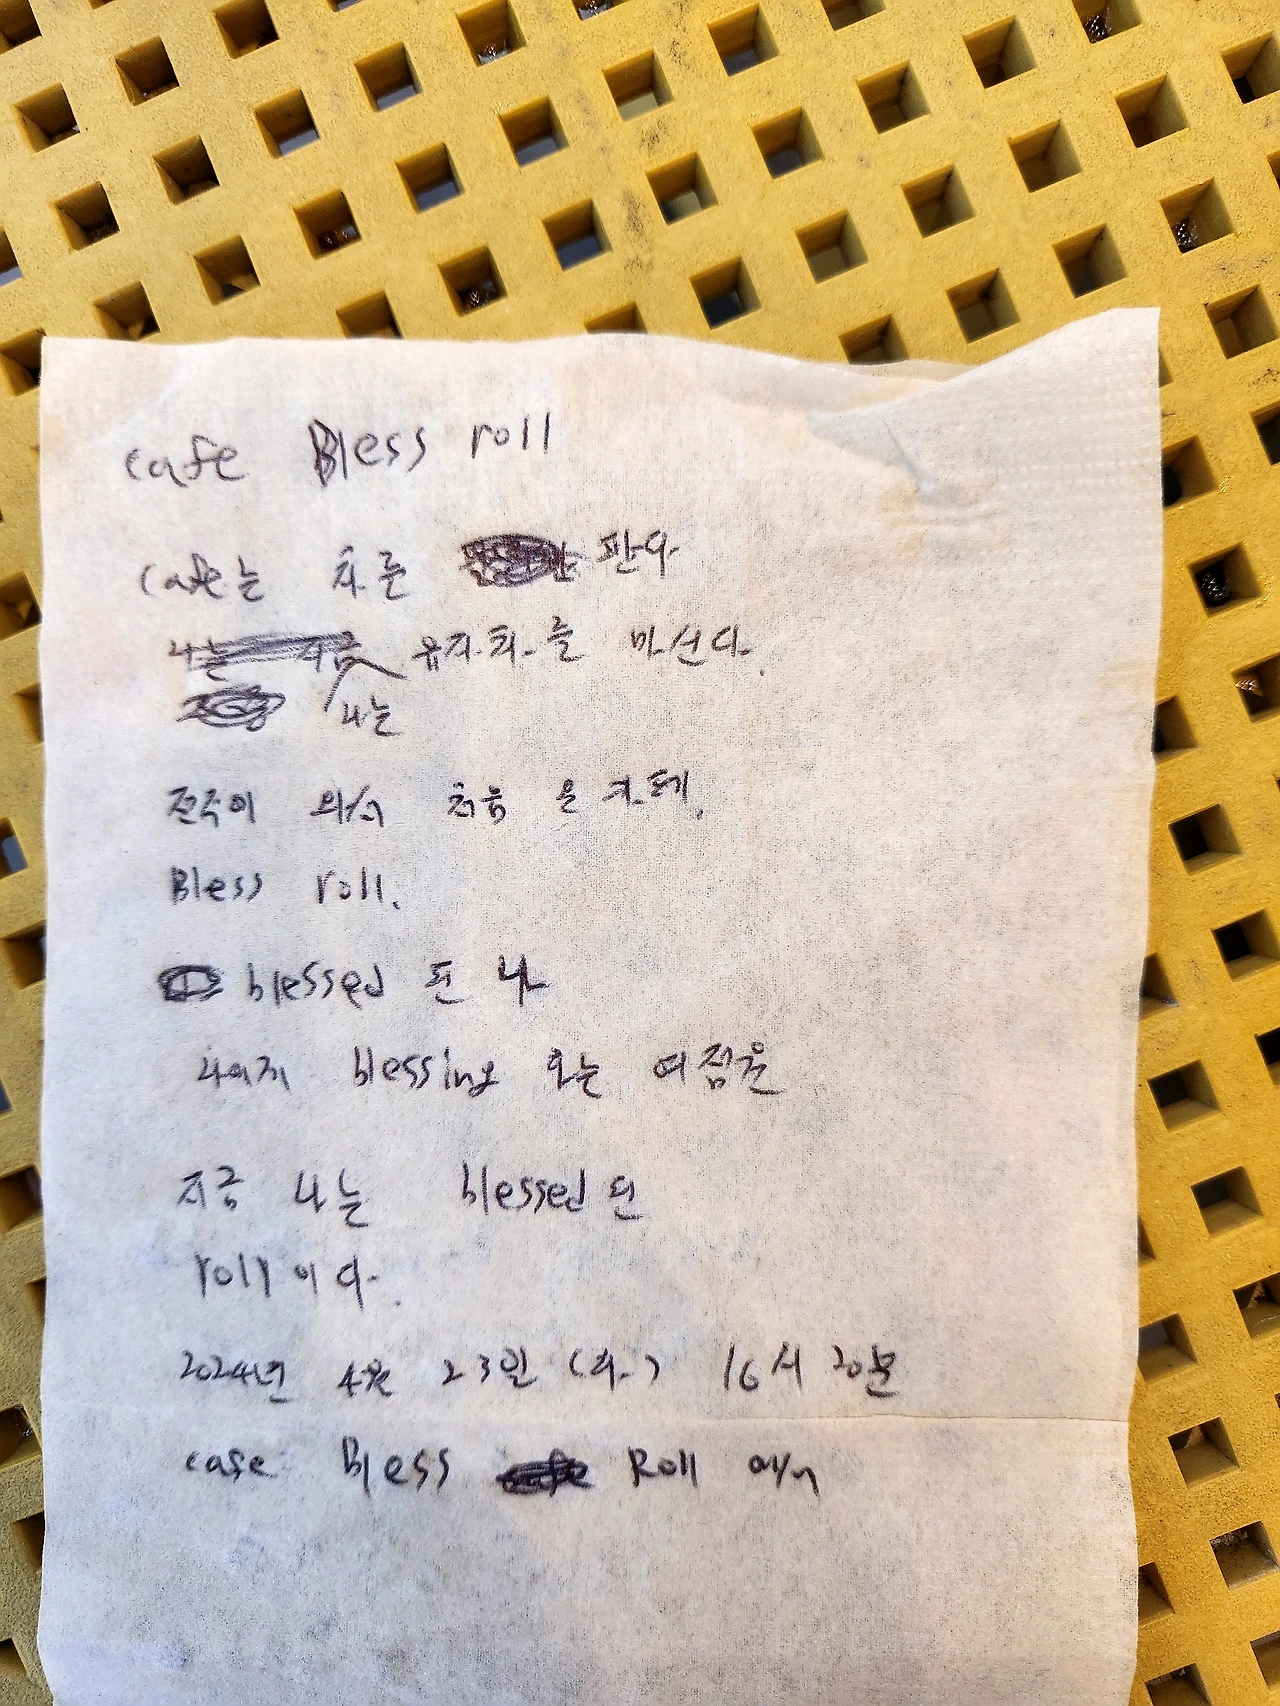 cafe Bless roll
cafe는 차를 판다
나는 지금 유자차를 마신다.
나는
전주에 와서 처음 온 카페.
Bless roll.
blessed 된 나
나에게 blessing 오는 이 점은
지금 나는 blessed 된
roll이다.
2024년 4월 23일 (화) 16시 20분
cafe Bless Roll 에서